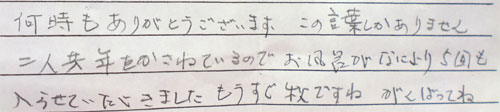 何時もありがとうございます この言葉しかありません
二人共年をかさねているので お風呂がなにより 5回も
入らせていただきました もうすぐ秋ですね がんばってね